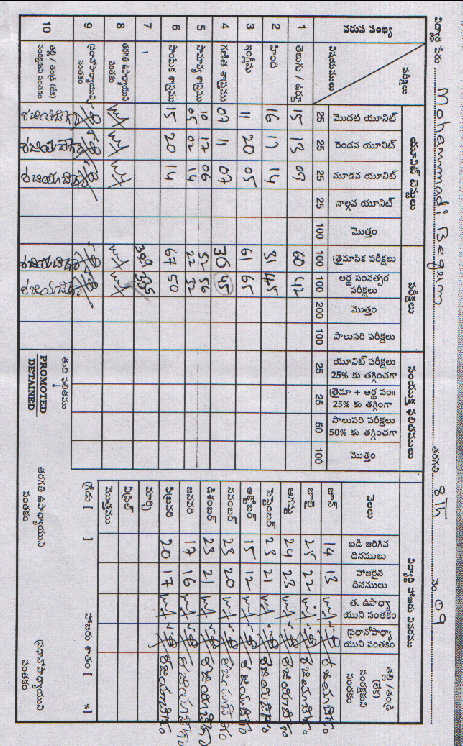 విద్యార్థి పేరు Mohammadi Begum తరగతి 8th నెం. 09
వరుస సంఖ్య 1 2 3 4 5 6 7 8 9 10
పరీక్షలు విషయములు తెలుగు / ఉర్దూ హింది ఇంగ్లీషు గణిత శాస్త్రము సామాన్య శాస్త్రము సాంఘిక శాస్త్రము తరగతి ఉపాధ్యాయుని సంతకం ప్రధానోపాధ్యాయుని సంతకం తల్లి / తండ్రి (లేక) సంరక్షకుని సంతకం
యూనిట్ టెస్టులు
మొదటి యూనిట్ 25 15 16 11 09 10 05 15
రెండవ యూనిట్ 25 13 17 20 11 12 02 20
మూడవ యూనిట్ 25 09 14 05 07 06 14 14
నాల్గవ యూనిట్ 25
మొత్తం 100
పరీక్షలు
త్రైమాసిక పరీక్షలు 100 60 51 61 36 67
అర్ధ సంవత్సర పరీక్షలు 100 42 45 65 45 56 50
మొత్తం 200
పాలుసరి పరీక్షలు 100
సంయుక్త ఫలితములు
యూనిట్ పరీక్షలు 25% కు తగ్గించగా 25
త్రైమా + అర్ధ సం॥ 25% కు తగ్గించగా 25
పాలుసరి పరీక్షలు 50% కు తగ్గించగా 50
మొత్తం 100
తుది ఫలితము
PROMOTED
DETAINED
విద్యార్థి హాజరు వివరము
నెలలు జూన్ జూలై ఆగష్టు సెప్టెంబర్ అక్టోబర్ నవంబర్ డిశంబర్ జనవరి ఫిబ్రవరి మార్చి ఏప్రిల్ మొత్తము
బడి జరిగిన దినములు 14 25 24 23 15 23 23 17 20
హాజరైన దినములు 13 22 23 21 12 20 21 16 17
త. ఉపాధ్యాయుని సంతకం
ప్రధానోపాధ్యాయుని సంతకం
తల్లి / తండ్రి (లేక) సంరక్షకుని సంతకం
గ్రేడు [ ] హాజరు శాతం [ %]
తరగతి ఉపాధ్యాయుని సంతకం
ప్రధానోపాధ్యాయుని సంతకం